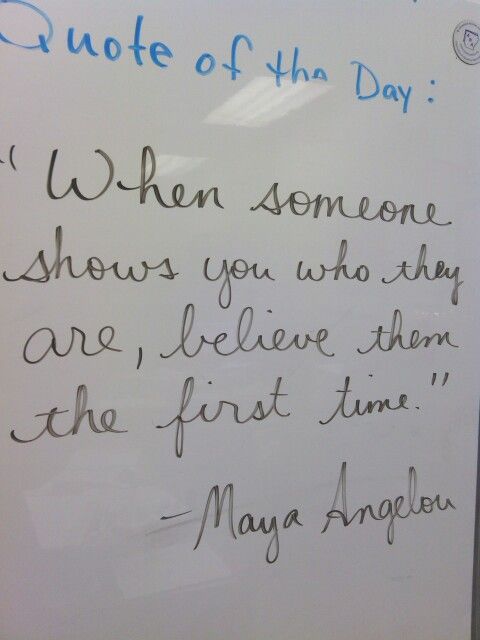 Quote of the Day:
"When someone
shows you who they
are, believe them
the first time."
- Maya Angelou